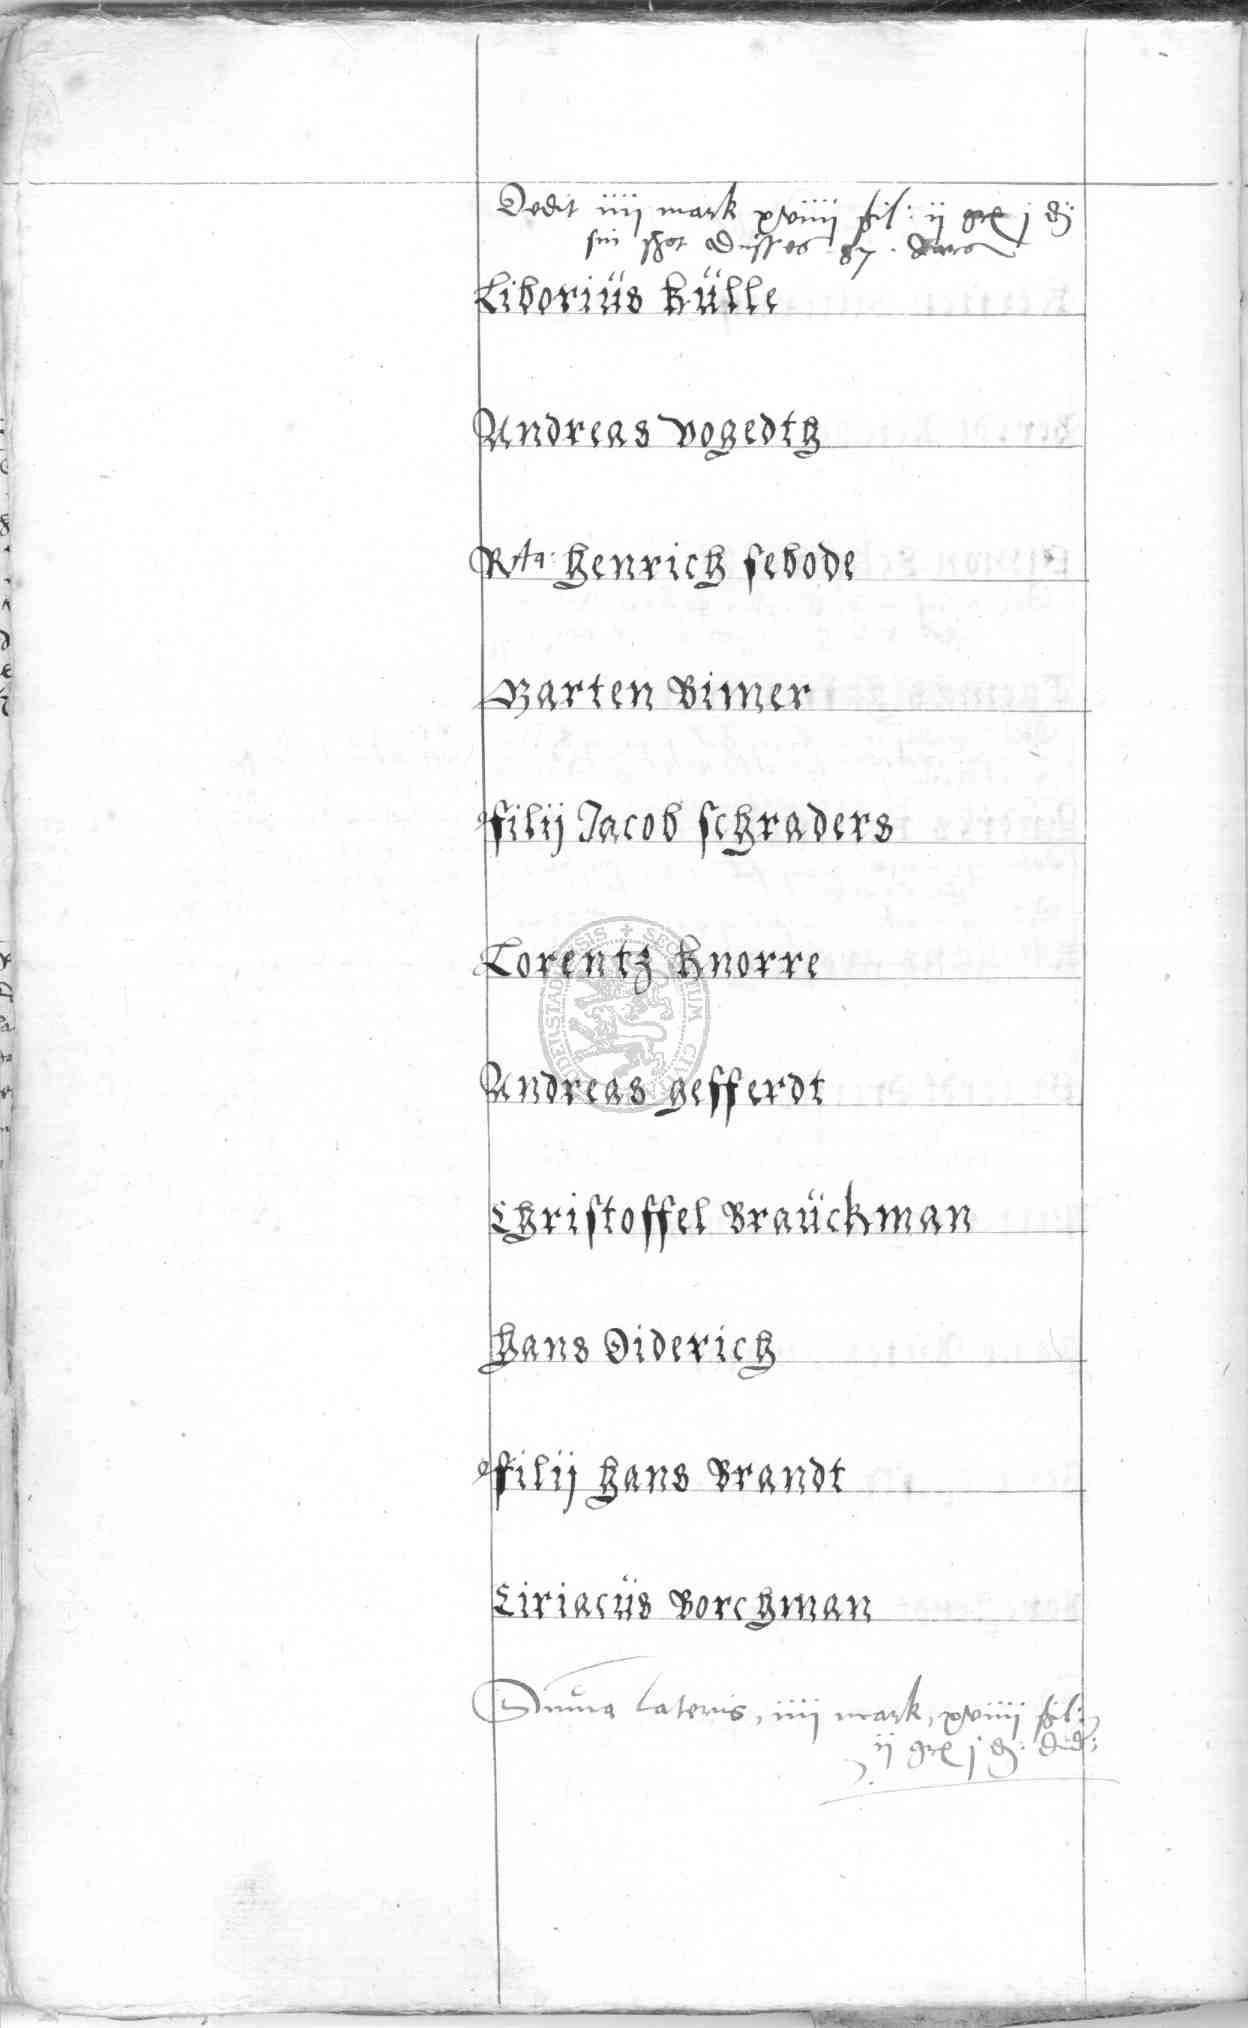 Dedit iiij mark xviiij ßil: ij gr j d
sin schot dusses 87. Jares
Liboriüs Külle
Andreas vogedth
Henrich sebode
Marten Bimer
filij Jacob schraders
Lorentz Knorre
Andreas gefferdt
Christoffel Braückman
Hans Diderich
filij Hans Brandt
Ciriacüs Borchman
Suma lateris, iiij mark, xviiij ßil:
ij gr j d: dud: